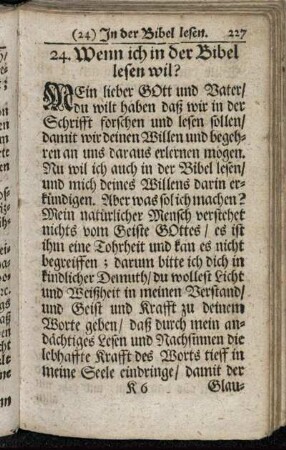 (24) In der Bibel lesen. 227
24. Wenn ich in der Bibel
lesen wil?
MEin lieber GOtt und Vater/
du wilt haben daß wir in der
Schrifft forschen und lesen sollen/
damit wir deinen Willen und begeh-
ren an uns daraus erlernen mögen.
Nu wil ich auch in der Bibel lesen/
und mich deines Willens darin er-
kündigen. Aber was sol ich machen?
Mein natürlicher Mensch verstehet
nichts vom Geiste GOttes/ es ist
ihm eine Tohrheit und kan es nicht
begreiffen; darum bitte ich dich in
kindlicher Demuth/ du wollest Licht
und Weißheit in meinen Verstand/
und Geist und Krafft zu deinem
Worte geben/ daß durch mein an-
dächtiges Lesen und Nachsinnen die
lebhaffte Krafft des Worts tieff in
meine Seele eindringe/ damit der
K 6 Glau-